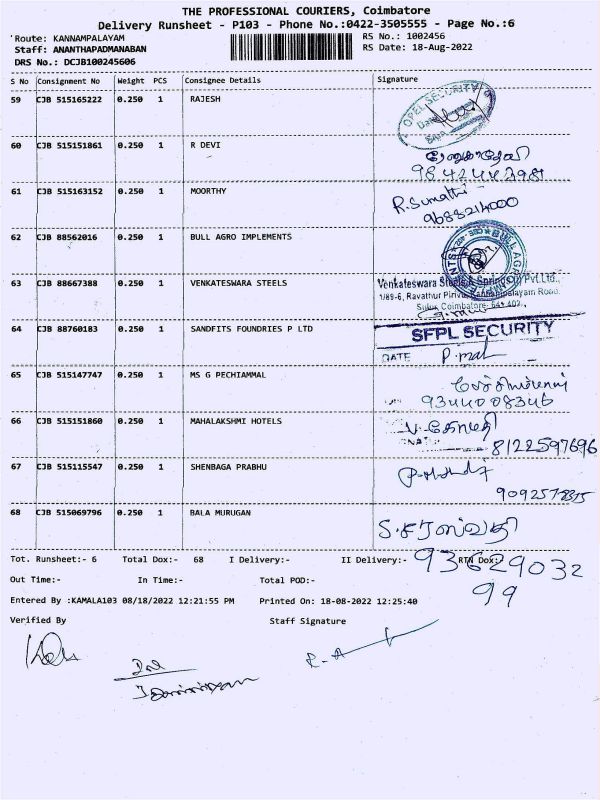 THE PROFESSIONAL COURIERS, Coimbatore
Delivery Runsheet - P103 - Phone No.:0422-3505555 - Page No.:6
Route: KANNAMPALAYAM
RS No.: 1002456
Staff: ANANTHAPADMANABAN
RS Date: 18-Aug-2022
DRS No.: DCJB100245606
S No Consignment No Weight PCS Consignee Details Signature
59 CJB 515165222 0.250 1 RAJESH
OPEL SECURITY
60 CJB 515151861 0.250 1 R DEVI
61 CJB 515163152 0.250 1 MOORTHY
R. Sumathi
9688214000
62 CJB 88562016 0.250 1 BULL AGRO IMPLEMENTS
63 CJB 88667388 0.250 1 VENKATESWARA STEELS
Venkateswara Steels & Springs Pvt.Ltd.,
1/89-6, Ravathur Pirivu, Kannampalayam Road,
Sulur, Coimbatore- 641 402.,
64 CJB 88760183 0.250 1 SANDFITS FOUNDRIES P LTD
SFPL SECURITY
DATE
65 CJB 515147747 0.250 1 MS G PECHIAMMAL
9344008346
66 CJB 515151860 0.250 1 MAHALAKSHMI HOTELS
8122597696
67 CJB 515115547 0.250 1 SHENBAGA PRABHU
68 CJB 515069796 0.250 1 BALA MURUGAN
S.சரஸ்வதி
Tot. Runsheet:- 6 Total Dox:- 68 I Delivery:- II Delivery:- RTN Dox:-
93629032
99
Out Time:- In Time:- Total POD:-
Entered By :KAMALA103 08/18/2022 12:21:55 PM Printed On: 18-08-2022 12:25:40
Verified By Staff Signature